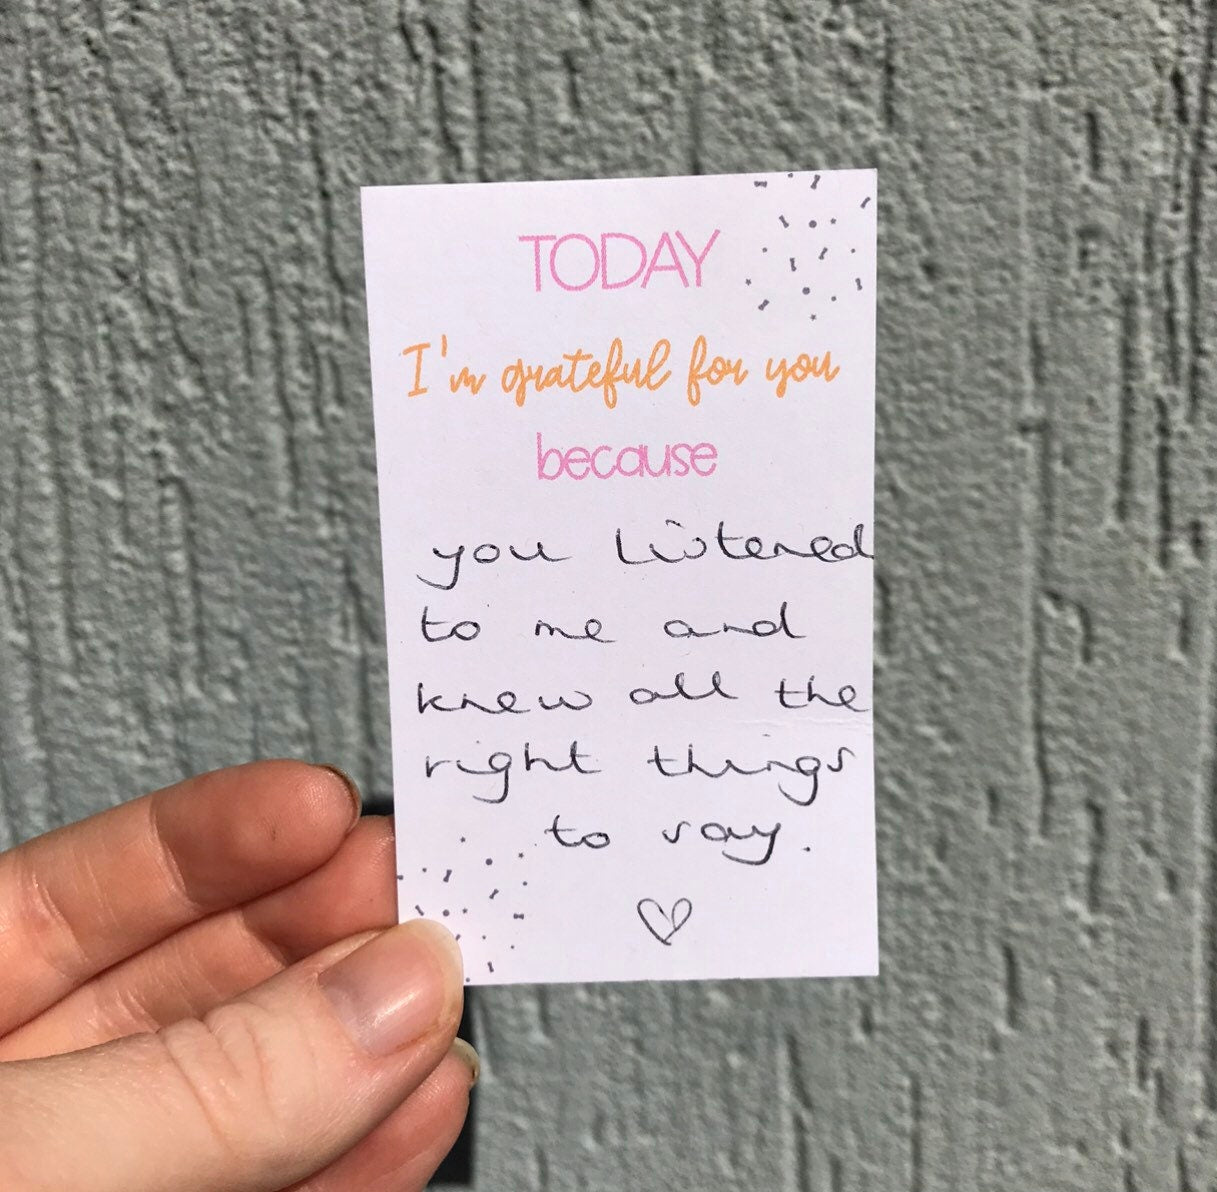 TODAY
I'm grateful for you
because
you listened
to me and
knew all the
right things
to say.